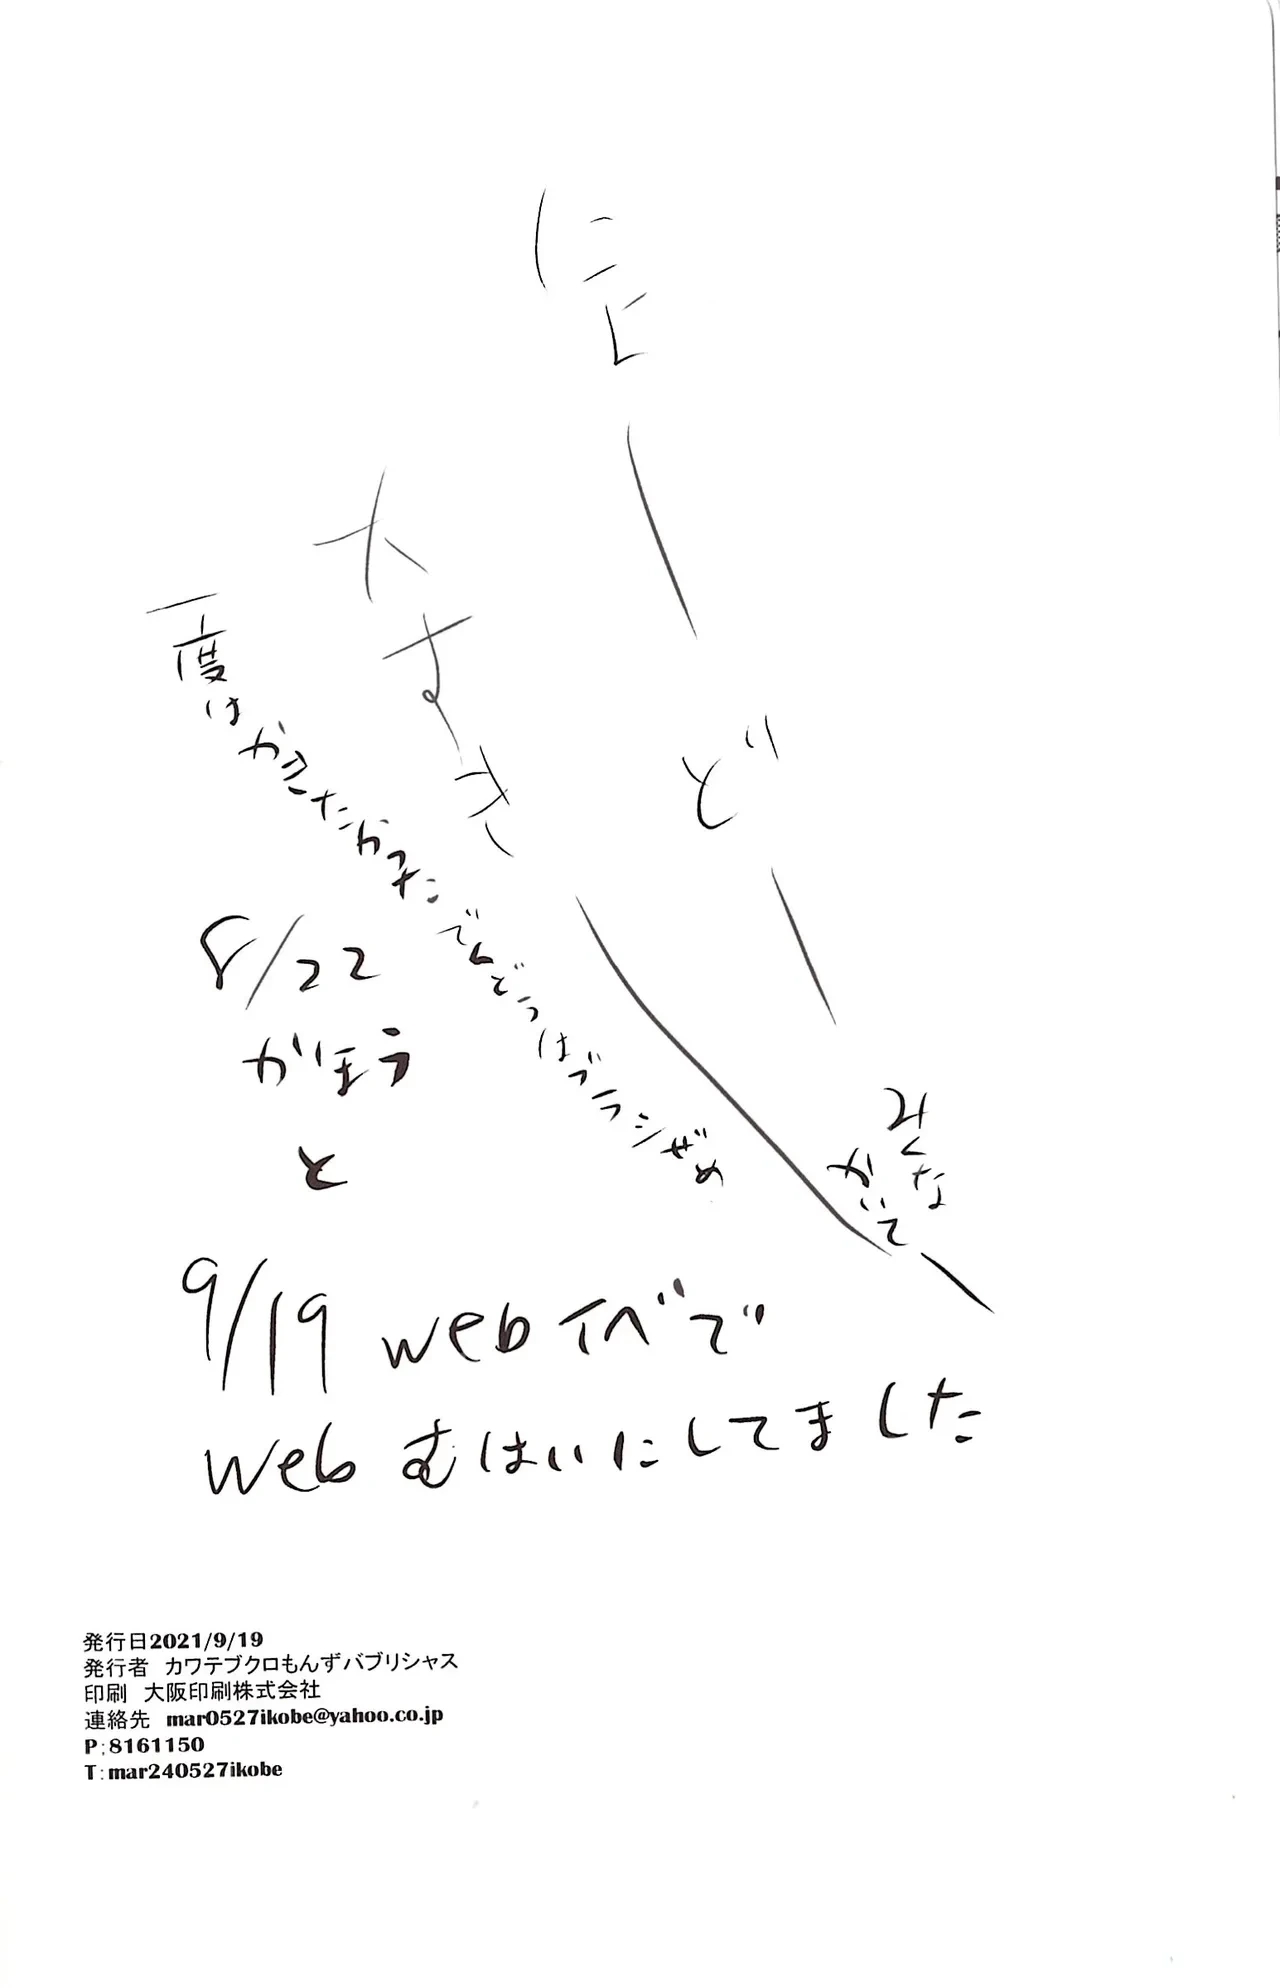 にょーどー
みんな
かいてー
大すきー
一度はかみたかみた
でんどうはブラシぜめ
8/22
がほう
と
9/19 webイベで
webむはいにしてました
発行日2021/9/19
発行者 カワテブクロもんずパブリシャス
印刷 大阪印刷株式会社
連絡先 mar0527ikobe@yahoo.co.jp
P:8161150
T:mar240527ikobe